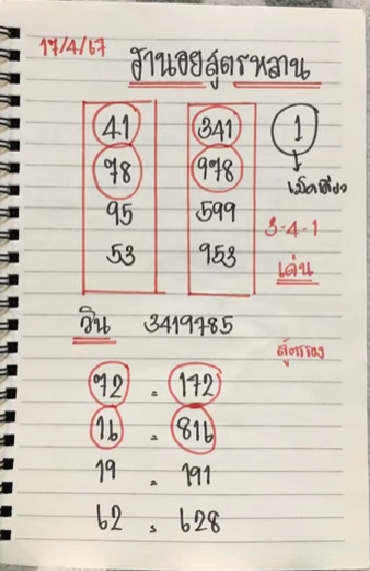 17/4/67
ฮานอยสูตรหลาน
41 341 1
78 978 เม็ดเดียว
95 599
3-4-1
53 953
เด่น
วิน 3419785
สูตรรอง
72 - 172
16 - 816
19 - 191
62 - 628